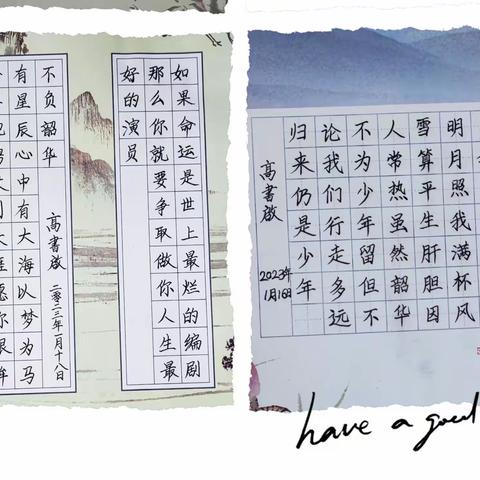 如果命运是世上最烂的编剧
那么你就要争取做你人生最
好的演员
有星辰心中有大海以梦为马
不负韶华
高書啟 二〇二三年一月十八日
明月照我满杯风
雪算平生肝胆因
人常热虽然韶华
不为少年留但不
论我们行走多远
归来仍是少年
高書啟
2023年
1月16日
have a good